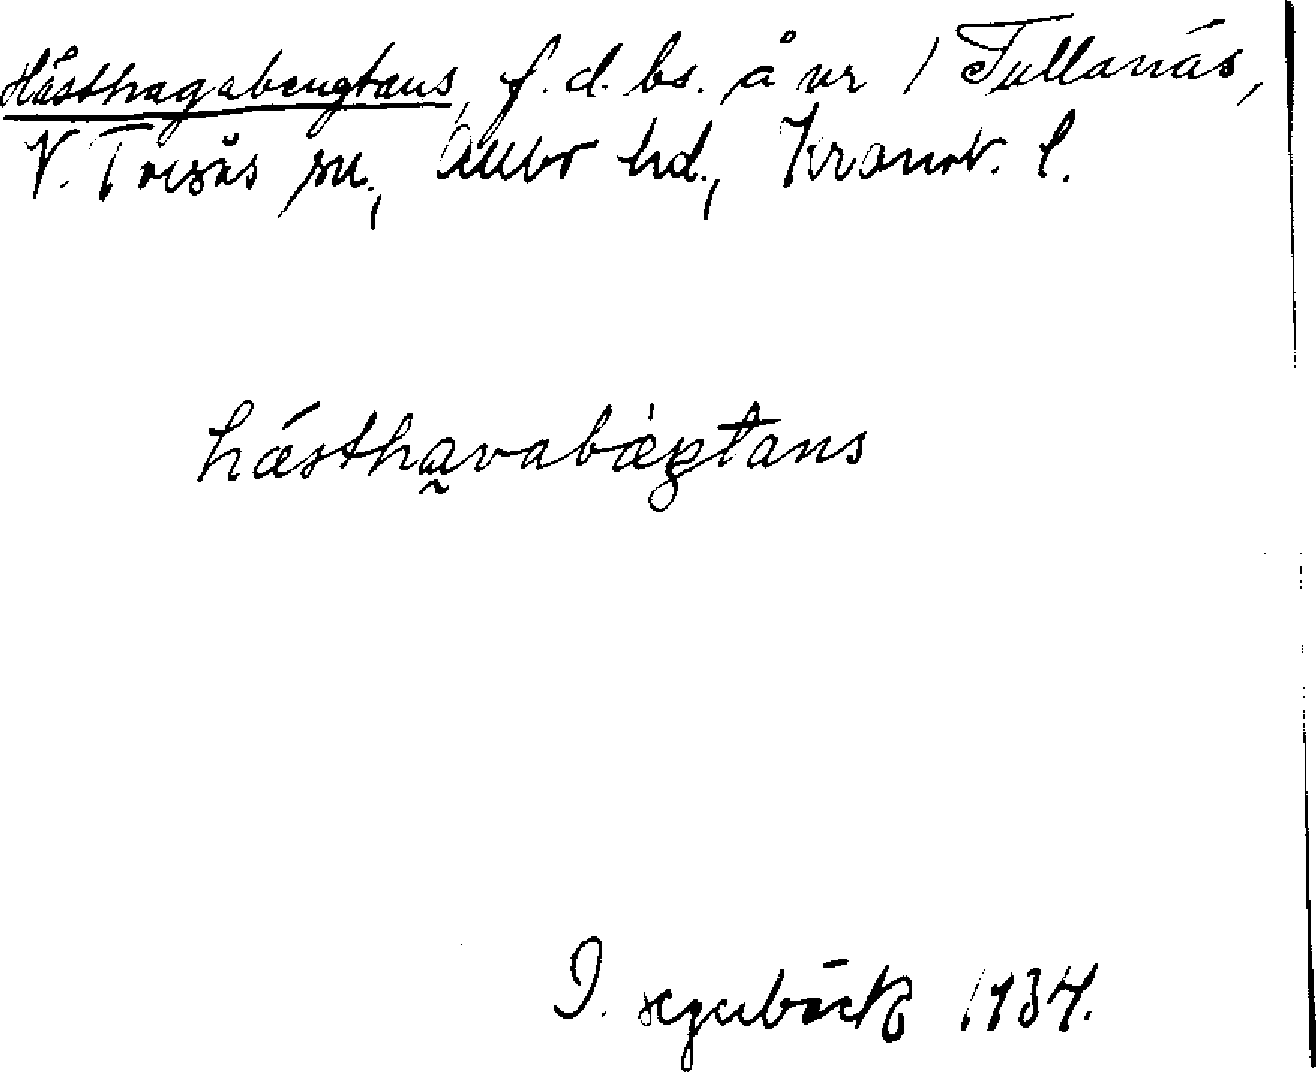 Hästhagabengtans, f.d. bs. å vr / Tullanäs,
V. Torsås sn., Allbo hd., Kronob. l.
hästhavabæŋtans
I. Segerbäck 1934.